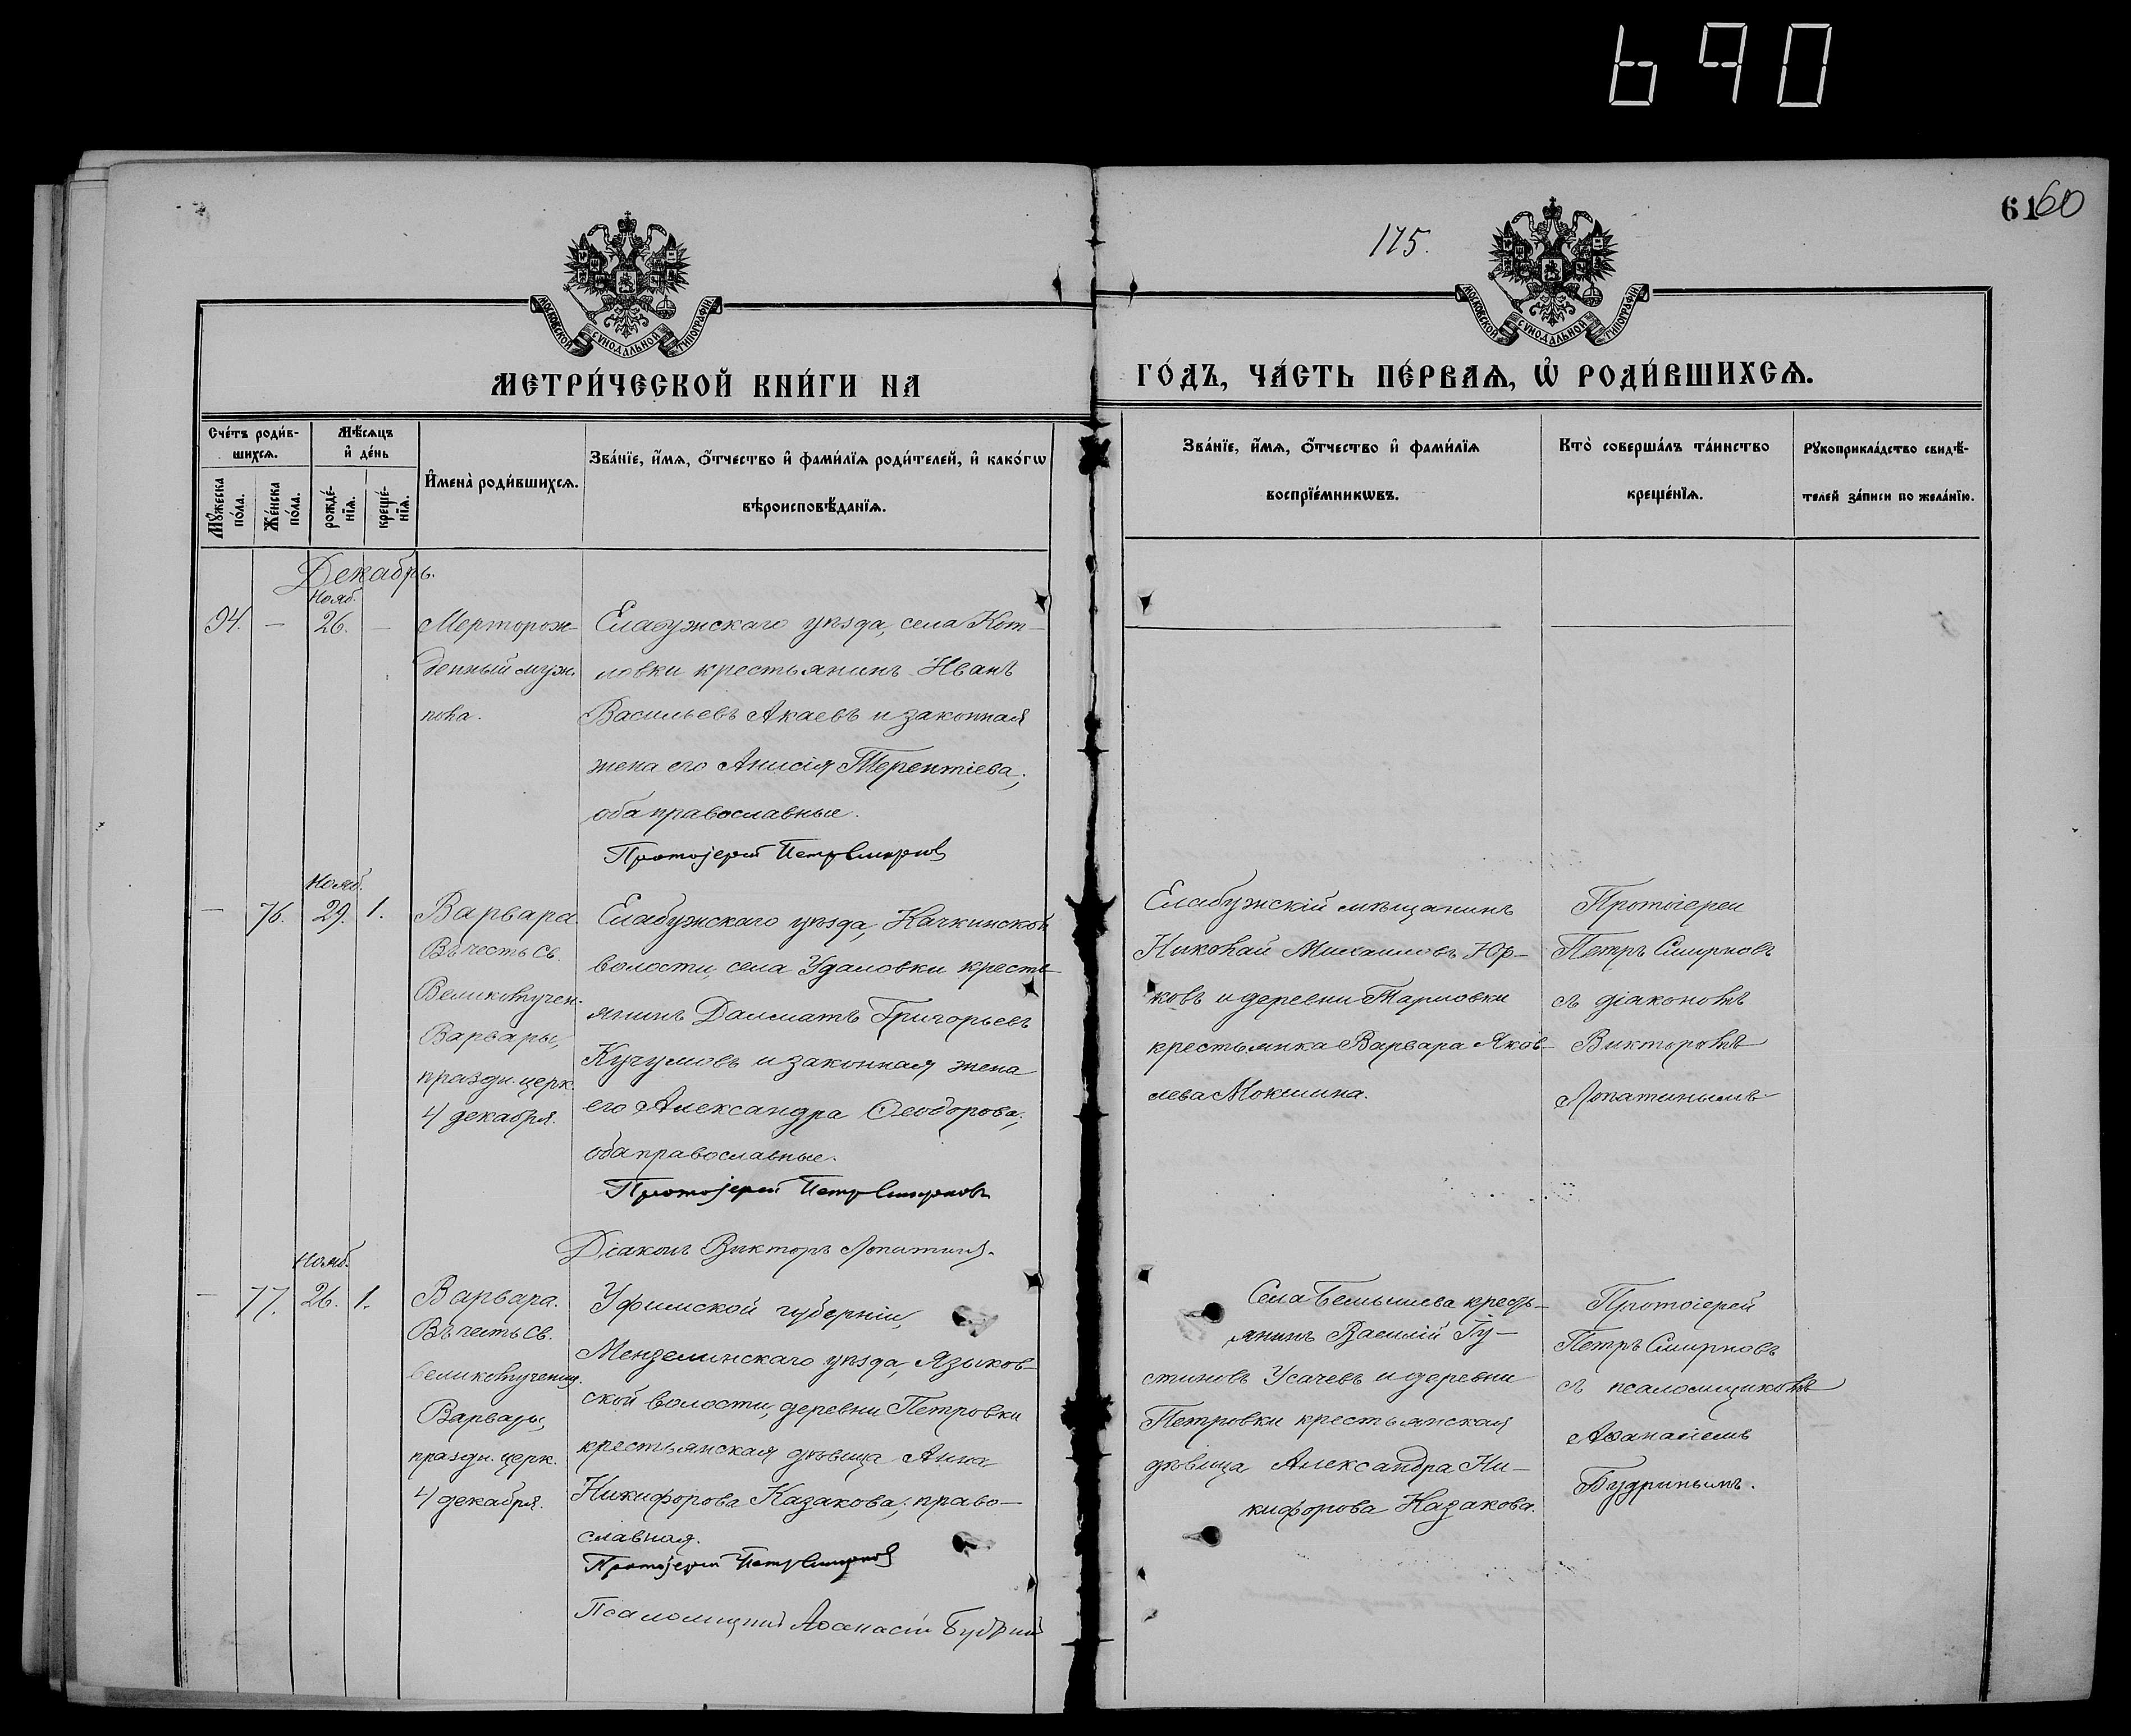 690
6160
175.
МОСКОВСКОЙ СѴНОДАЛЬНОЙ ТИПОГРАФІИ
МОСКОВСКОЙ СѴНОДАЛЬНОЙ ТИПОГРАФІИ
МЕТРИ́ЧЕСКОЙ КНИ́ГИ НА
ГО́ДЪ, ЧА́СТЬ ПЕ́РВАѦ, Ѡ҆ РОДИ́ВШИХСѦ.
Сче́тъ роди́в-
шихсѧ.
Мꙋ́жеска по́ла.
Же́нска по́ла.
Мѣ́сѧцъ
и҆ де́нь
рожде́-нїѧ.
креще́-нїѧ.
И҆мена̀ роди́вшихсѧ.
Зва́нїе, и҆́мѧ, ѻ҆́тчество и҆ фами́лїѧ роди́телей, и҆ како́гѡ
вѣроисповѣ́данїѧ.
Зва́нїе, и҆́мѧ, ѻ҆́тчество и҆ фами́лїѧ
воспрїе́мникѡвъ.
Кто̀ соверша́лъ та́инство
креще́нїѧ.
Рꙋкоприкла́дство свидѣ́-
телей за́писи по жела́нїю.
Декабрь.
Нояб.
94. — 26. —
Мерторож-
денный муж.
пола.
Елабужскаго уѣзда, села Кот-
ловки крестьянинъ Иванъ
Васильевъ Акаевъ и законная
жена его Анисія Терентіева;
оба православные.
Протоjерей Петръ Смирновъ
Нояб.
— 76. 29. 1.
Варвара.
Въ честь Св.
Великомучен.
Варвары,
праздн. церк.
4 декабря.
Елабужскаго уѣзда, Качкинской
волости, села Удаловки кресть-
янинъ Далматъ Григорьевъ
Кучумовъ и законная жена
его Александра Ѳеодорова;
оба православные.
Протоjерей Петръ Смирновъ
Діаконъ Викторъ Лопатинъ.
Елабужскій мѣщанинъ
Николай Михаиловъ Юр-
ковъ и деревни Тарловки
крестьянка Варвара Яков-
лева Мокшина.
Протоіерей
Петръ Смирновъ
съ діакономъ
Викторомъ
Лопатинымъ
Нояб.
— 77. 26. 1.
Варвара.
Въ честь Св.
великомучениц.
Варвары,
праздн. церк.
4 декабря.
Уфимской губерніи,
Мензелинскаго уѣзда, Языков-
ской волости, деревни Петровки
крестьянская дѣвица Анна
Никифорова Казакова; право-
славная.
Протоjерей Петръ Смирновъ
Псаломщикъ Аѳанасій Будринъ
Села Бетьшева кресть-
янинъ Василій Іу-
стиновъ Усачевъ и деревни
Петровки крестьянская
дѣвица Александра Ни-
кифорова Казакова.
Протоіерей
Петръ Смирновъ
съ псаломщикомъ
Аѳанасіемъ
Будринымъ.